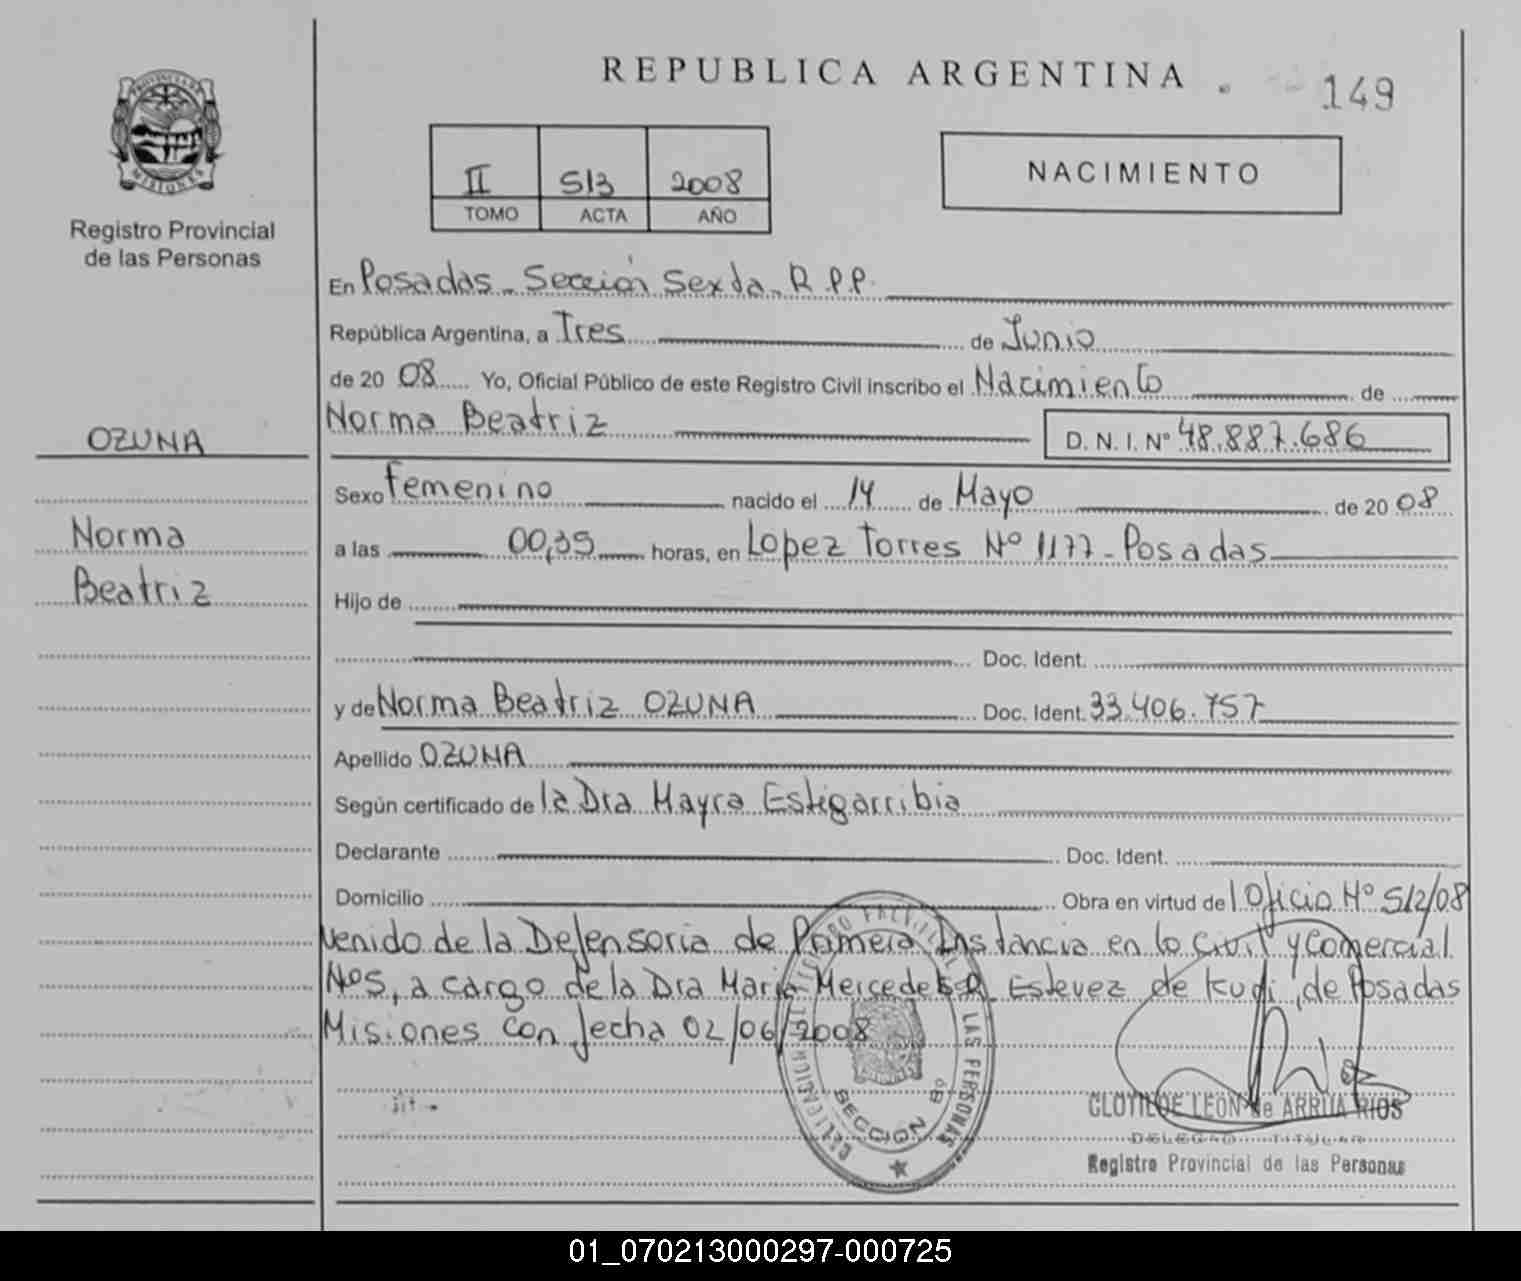 REPUBLICA ARGENTINA
149
PROVINCIA DE
MISIONES
Registro Provincial
de las Personas
II 513 2008
TOMO ACTA AÑO
NACIMIENTO
En Posadas - Sección Sexta - R.P.P.
República Argentina, a Tres de Junio
de 20 08 Yo, Oficial Público de este Registro Civil inscribo el Nacimiento de
Norma Beatriz D. N. I. Nº 48.887.686
OZUNA
Norma
Beatriz
Sexo Femenino nacido el 14 de Mayo de 20 08
a las 00,35 horas, en Lopez Torres Nº 1177 - Posadas
Hijo de
Doc. Ident.
y de Norma Beatriz OZUNA Doc. Ident. 33.406.757
Apellido OZUNA
Según certificado de la Dra Mayra Estigarribia
Declarante Doc. Ident.
Domicilio Obra en virtud del Oficio Nº 512/08
venido de la Defensoria de Primera Instancia en lo Civil y Comercial
Nº5, a cargo de la Dra Maria Mercedes R. Estevez de Kudi, de Posadas
Misiones con fecha 02/06/2008
LAS PERSONAS
SECCION
CLOTILDE LEON de ARRUA RIOS
DELEGAD TITULAR
Registro Provincial de las Personas
01_070213000297-000725